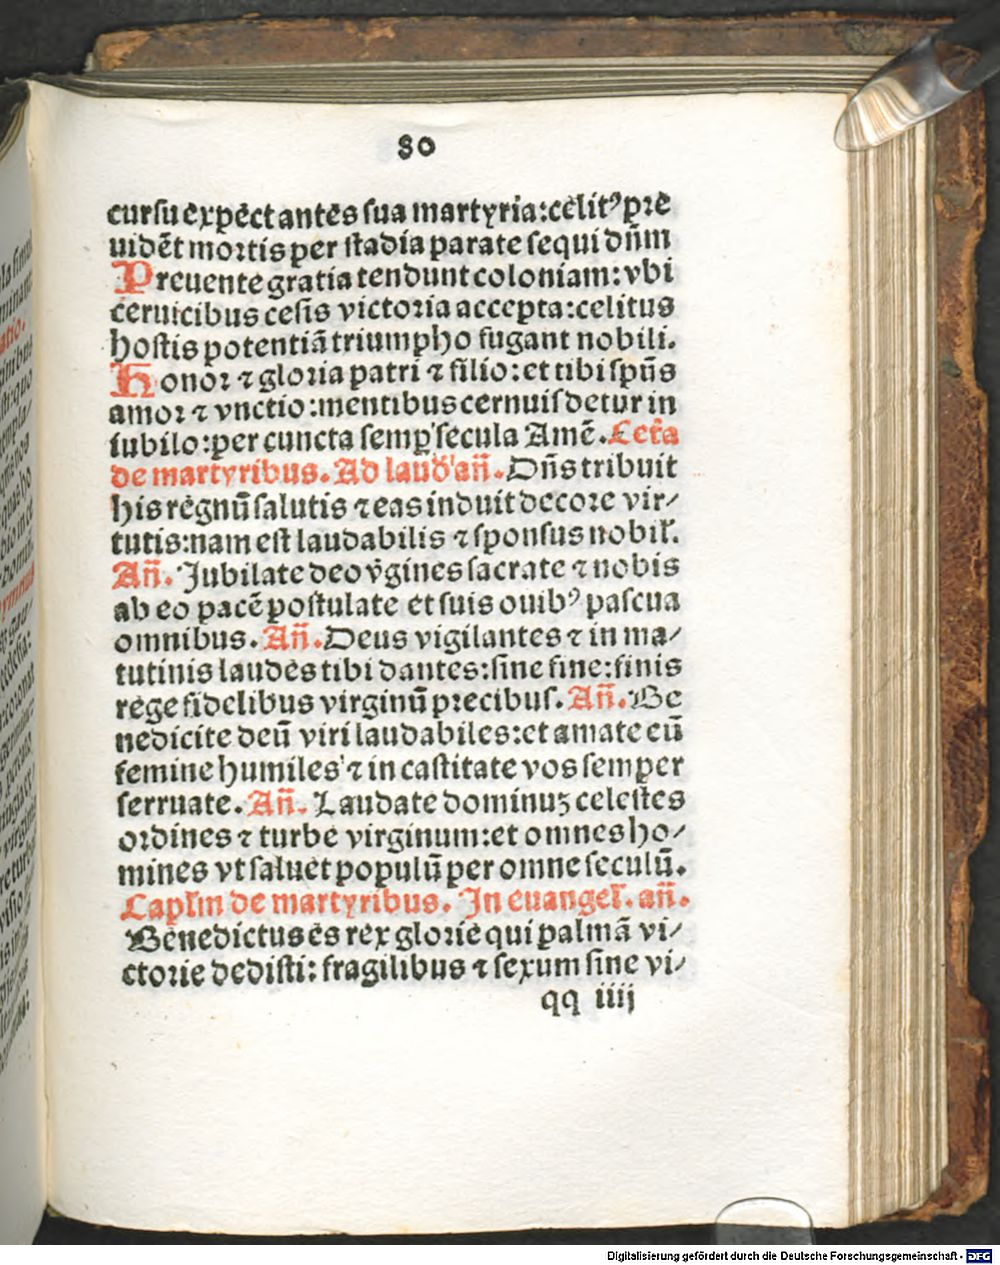 80
cursu expectantes sua martyria:celitꝰ pre
uidēt mortis per stadia parate sequi dn̄m
Preuente gratia tendunt coloniam: vbi
ceruicibus cesis victoria accepta:celitus
hostis potentiā triumpho fugant nobili.
Honor ⁊ gloria patri ⁊ filio: et tibi spūs
amor ⁊ vnctio:mentibus cernuis detur in
iubilo:per cuncta semꝑ secula Amē. Cet̄a
de martyribus. Ad laud' an̄. Dn̄s tribuit
his regnū salutis ⁊ eas induit decore vir⸗
tutis:nam est laudabilis ⁊ sponsus nobil'.
An̄. Jubilate deo v̄gines sacrate ⁊ nobis
ab eo pacē postulate et suis ouibꝰ pascua
omnibus. An̄. Deus vigilantes ⁊ in ma⸗
tutinis laudes tibi dantes:sine fine:finis
rege fidelibus virginū precibus. An̄. Be
nedicite deū viri laudabiles:et amate eū
femine humiles ⁊ in castitate vos semper
serruate. An̄. Laudate dominuꝫ celestes
ordines ⁊ turbe virginum:et omnes ho⸗
mines vt saluet populū per omne seculū.
Capl'm de martyribus. In euangel'. an̄.
Benedictus es rex glorie qui palmā vi⸗
ctorie dedisti: fragilibus ⁊ sexum sine vi⸗
qq iiij
Digitalisierung gefördert durch die Deutsche Forschungsgemeinschaft - DFG